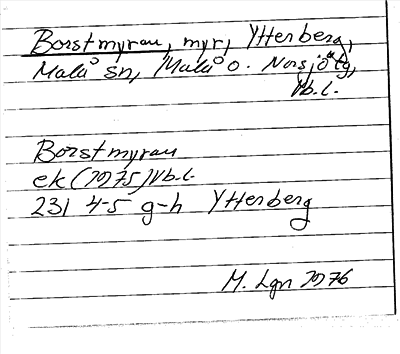 Borstmyran, myr, Ytterberg,
Malå sn, Malå o. Norsjö tg,
Vb.l.
Borstmyran
ek (1975) Vb.l.
23I 4-5 g-h Ytterberg
M. Lgn 1976